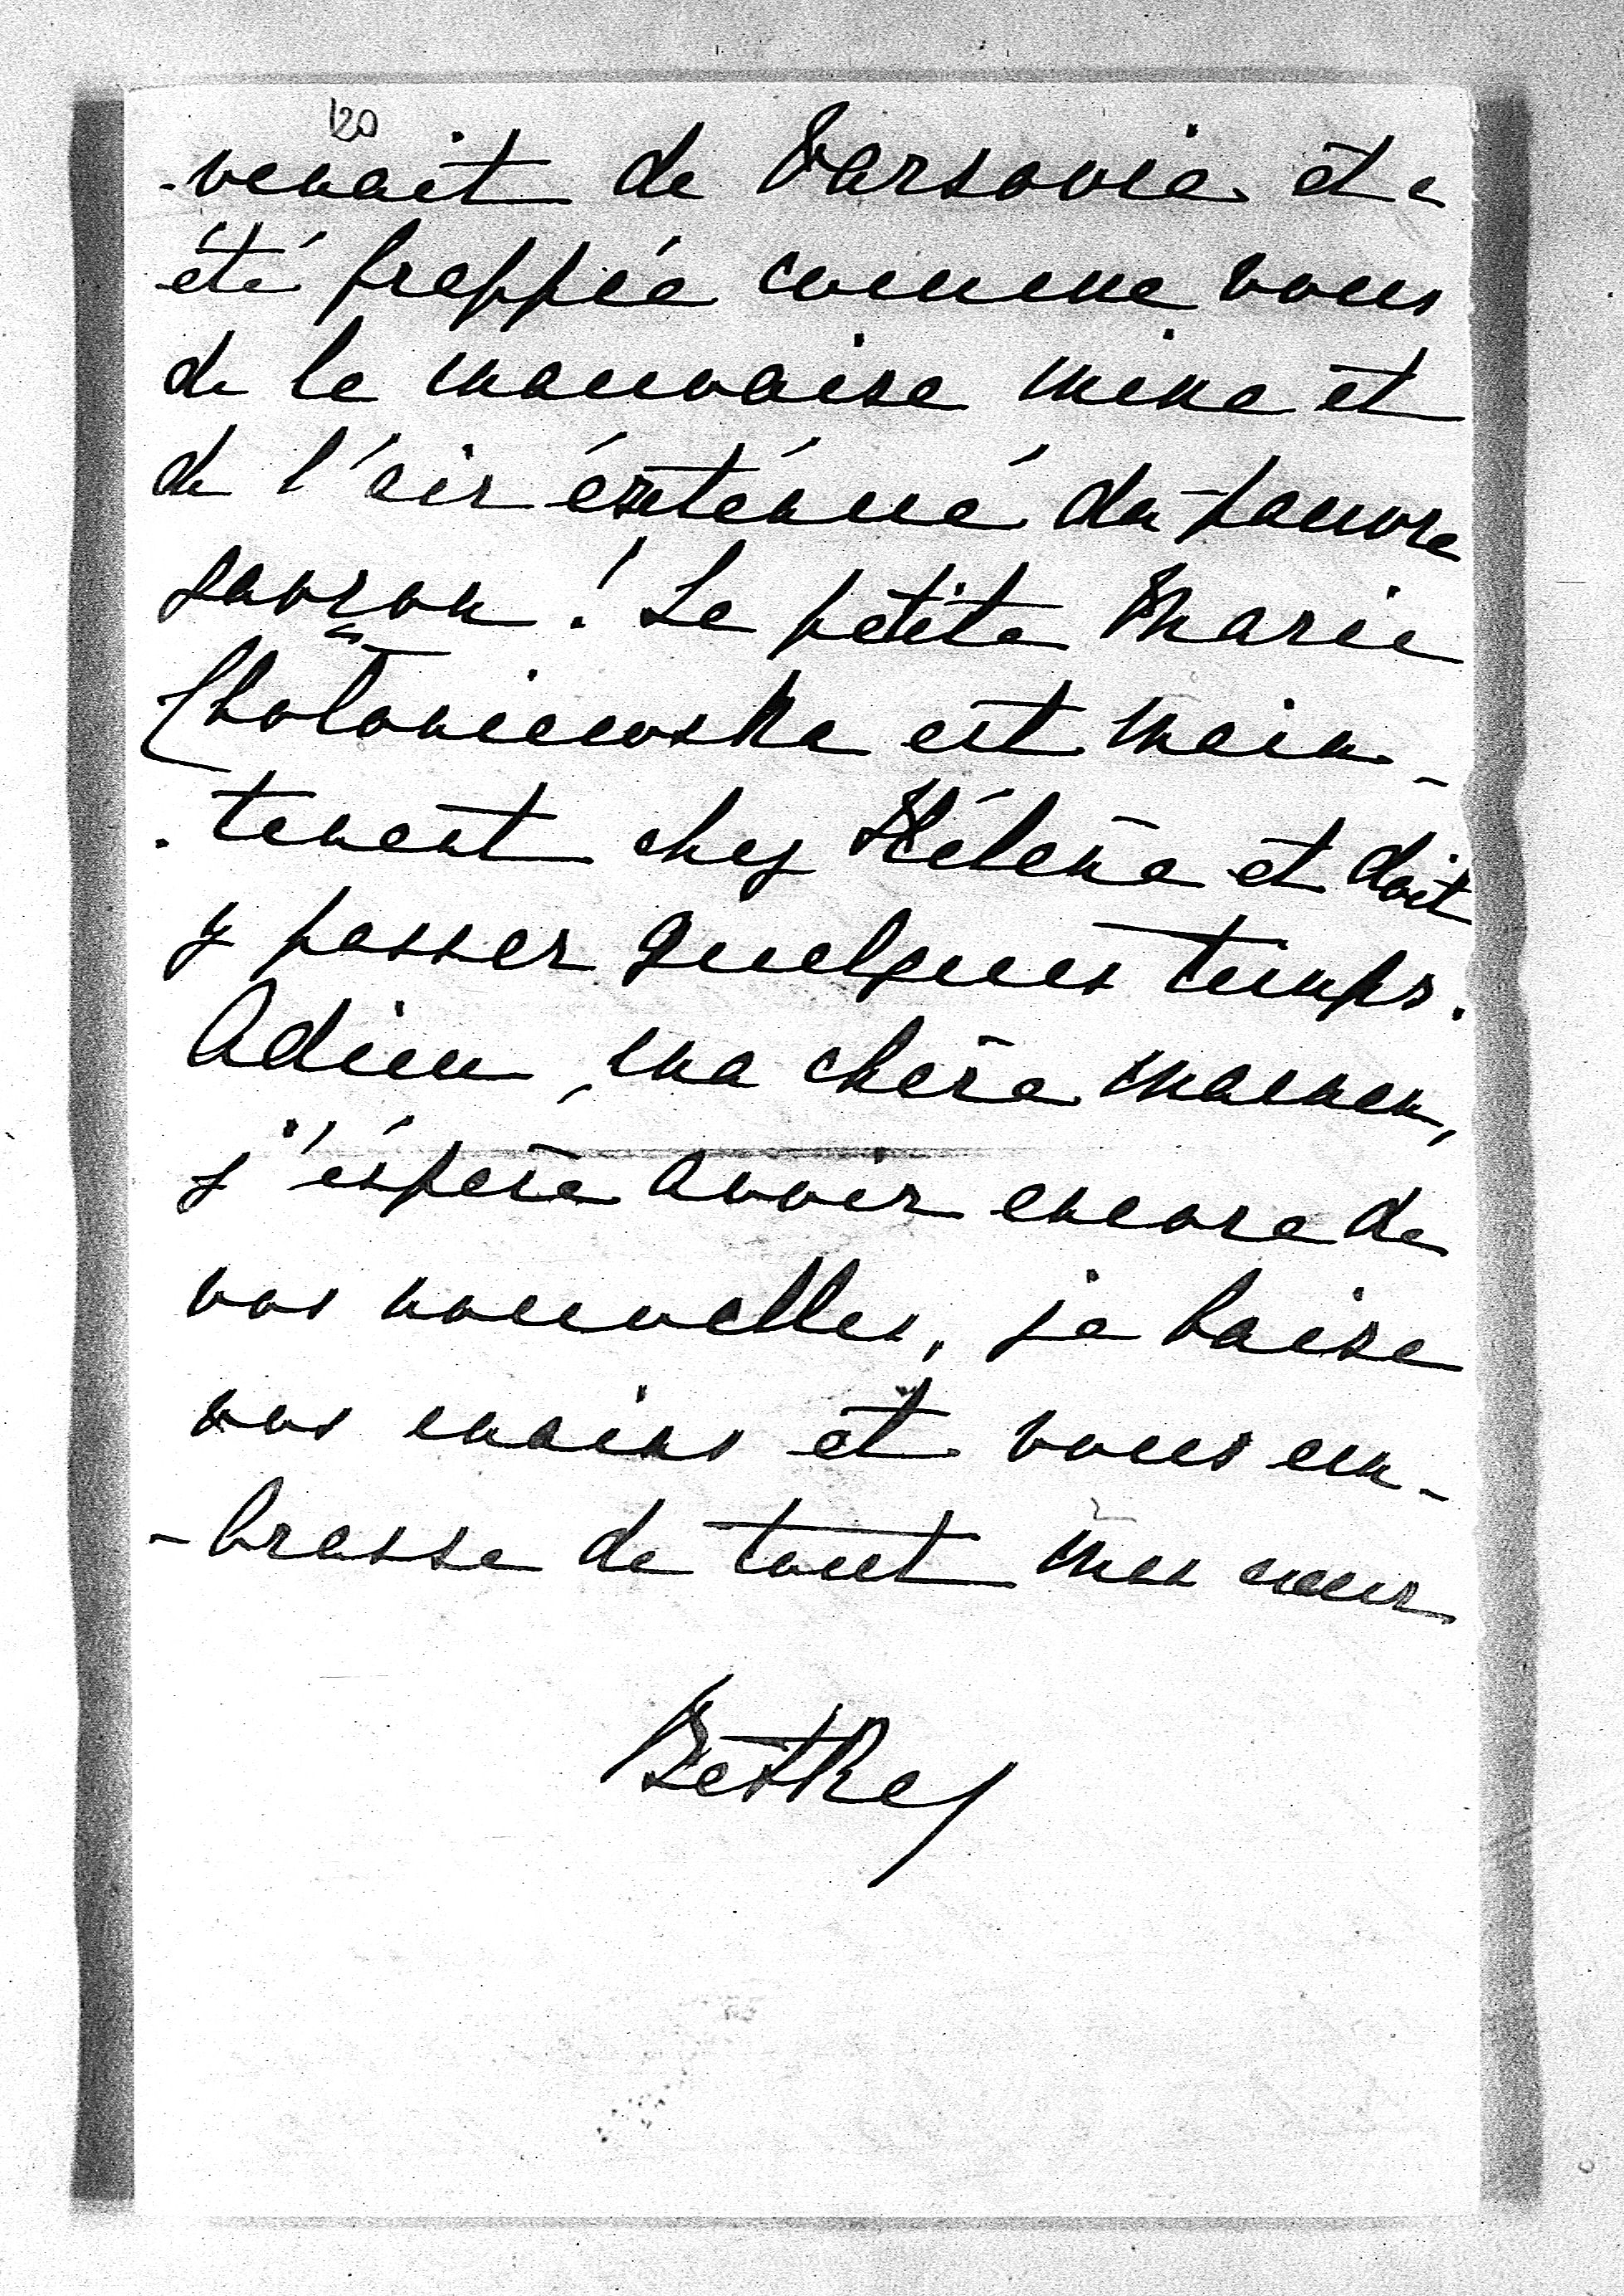 120
-venait de Varsovie et a
été frappée comme vous
de la mauvaise mine et
de l'air éxténué du pauvre
garçon! La petite Marie
Choloniewska est main-
-tenant chez Hélène et doit
y passer quelques temps.
Adieu, ma chère maman,
j'éspère avoir encore de
vos nouvelles, je baise
vos mains et vous em-
-brasse de tout mon cœur